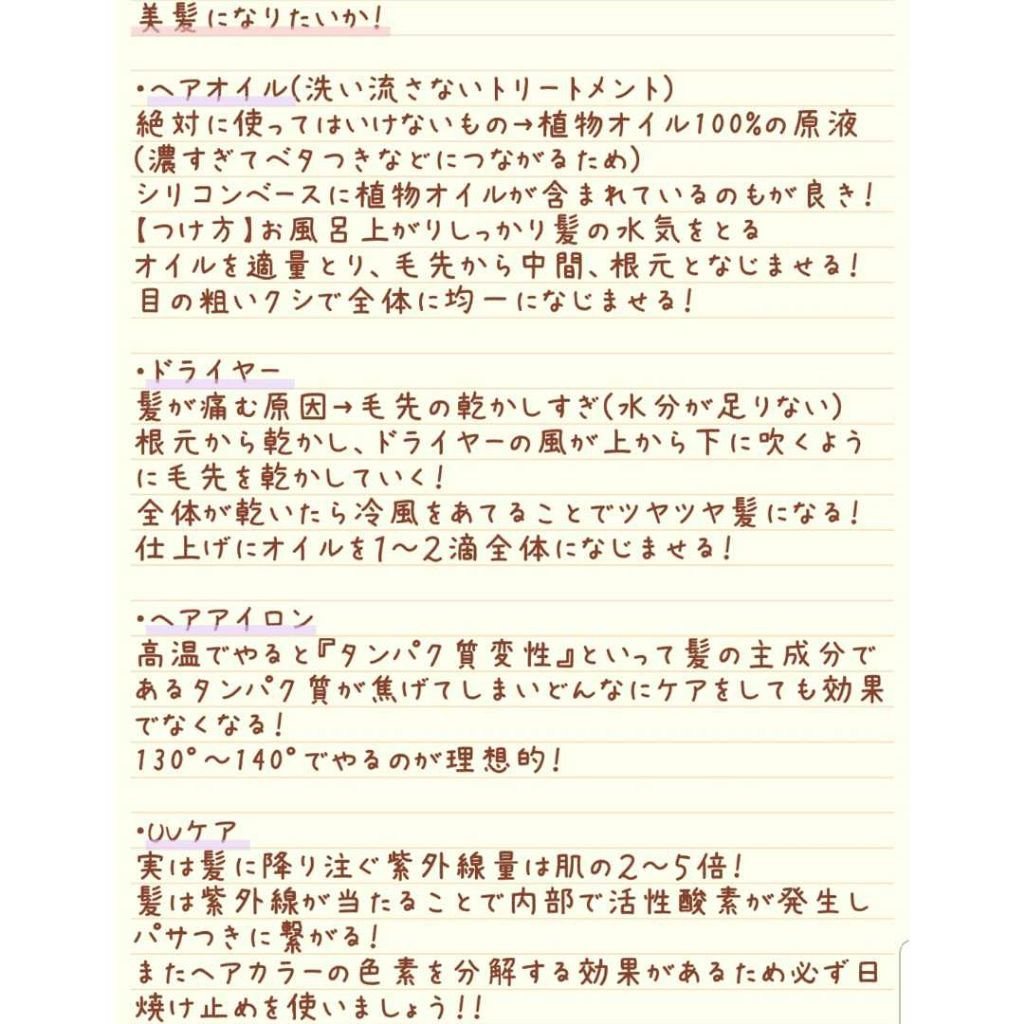 美髪になりたいか!
・ヘアオイル(洗い流さないトリートメント)
絶対に使ってはいけないもの→植物オイル100%の原液
(濃すぎてベタつきなどにつながるため)
シリコンベースに植物オイルが含まれているのもが良き!
【つけ方】お風呂上がりしっかり髪の水気をとる
オイルを適量とり、毛先から中間、根元となじませる!
目の粗いクシで全体に均一になじませる!
・ドライヤー
髪が痛む原因→毛先の乾かしすぎ(水分が足りない)
根元から乾かし、ドライヤーの風が上から下に吹くよう
に毛先を乾かしていく!
全体が乾いたら冷風をあてることでツヤツヤ髪になる!
仕上げにオイルを1〜2滴全体になじませる!
・ヘアアイロン
高温でやると『タンパク質変性』といって髪の主成分で
あるタンパク質が焦げてしまいどんなにケアをしても効果
でなくなる!
130°〜140°でやるのが理想的!
・UVケア
実は髪に降り注ぐ紫外線量は肌の2〜5倍!
髪は紫外線が当たることで内部で活性酸素が発生し
パサつきに繋がる!
またヘアカラーの色素を分解する効果があるため必ず日
焼け止めを使いましょう!!